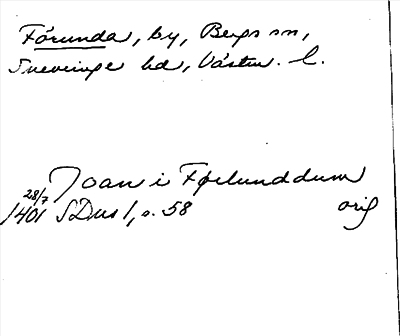 Forunda, by, Bergs sn,
Snevringe hd, Västm. l.
Joan i Førlunddum
28/7
1401 SDns 1, s. 58 orig